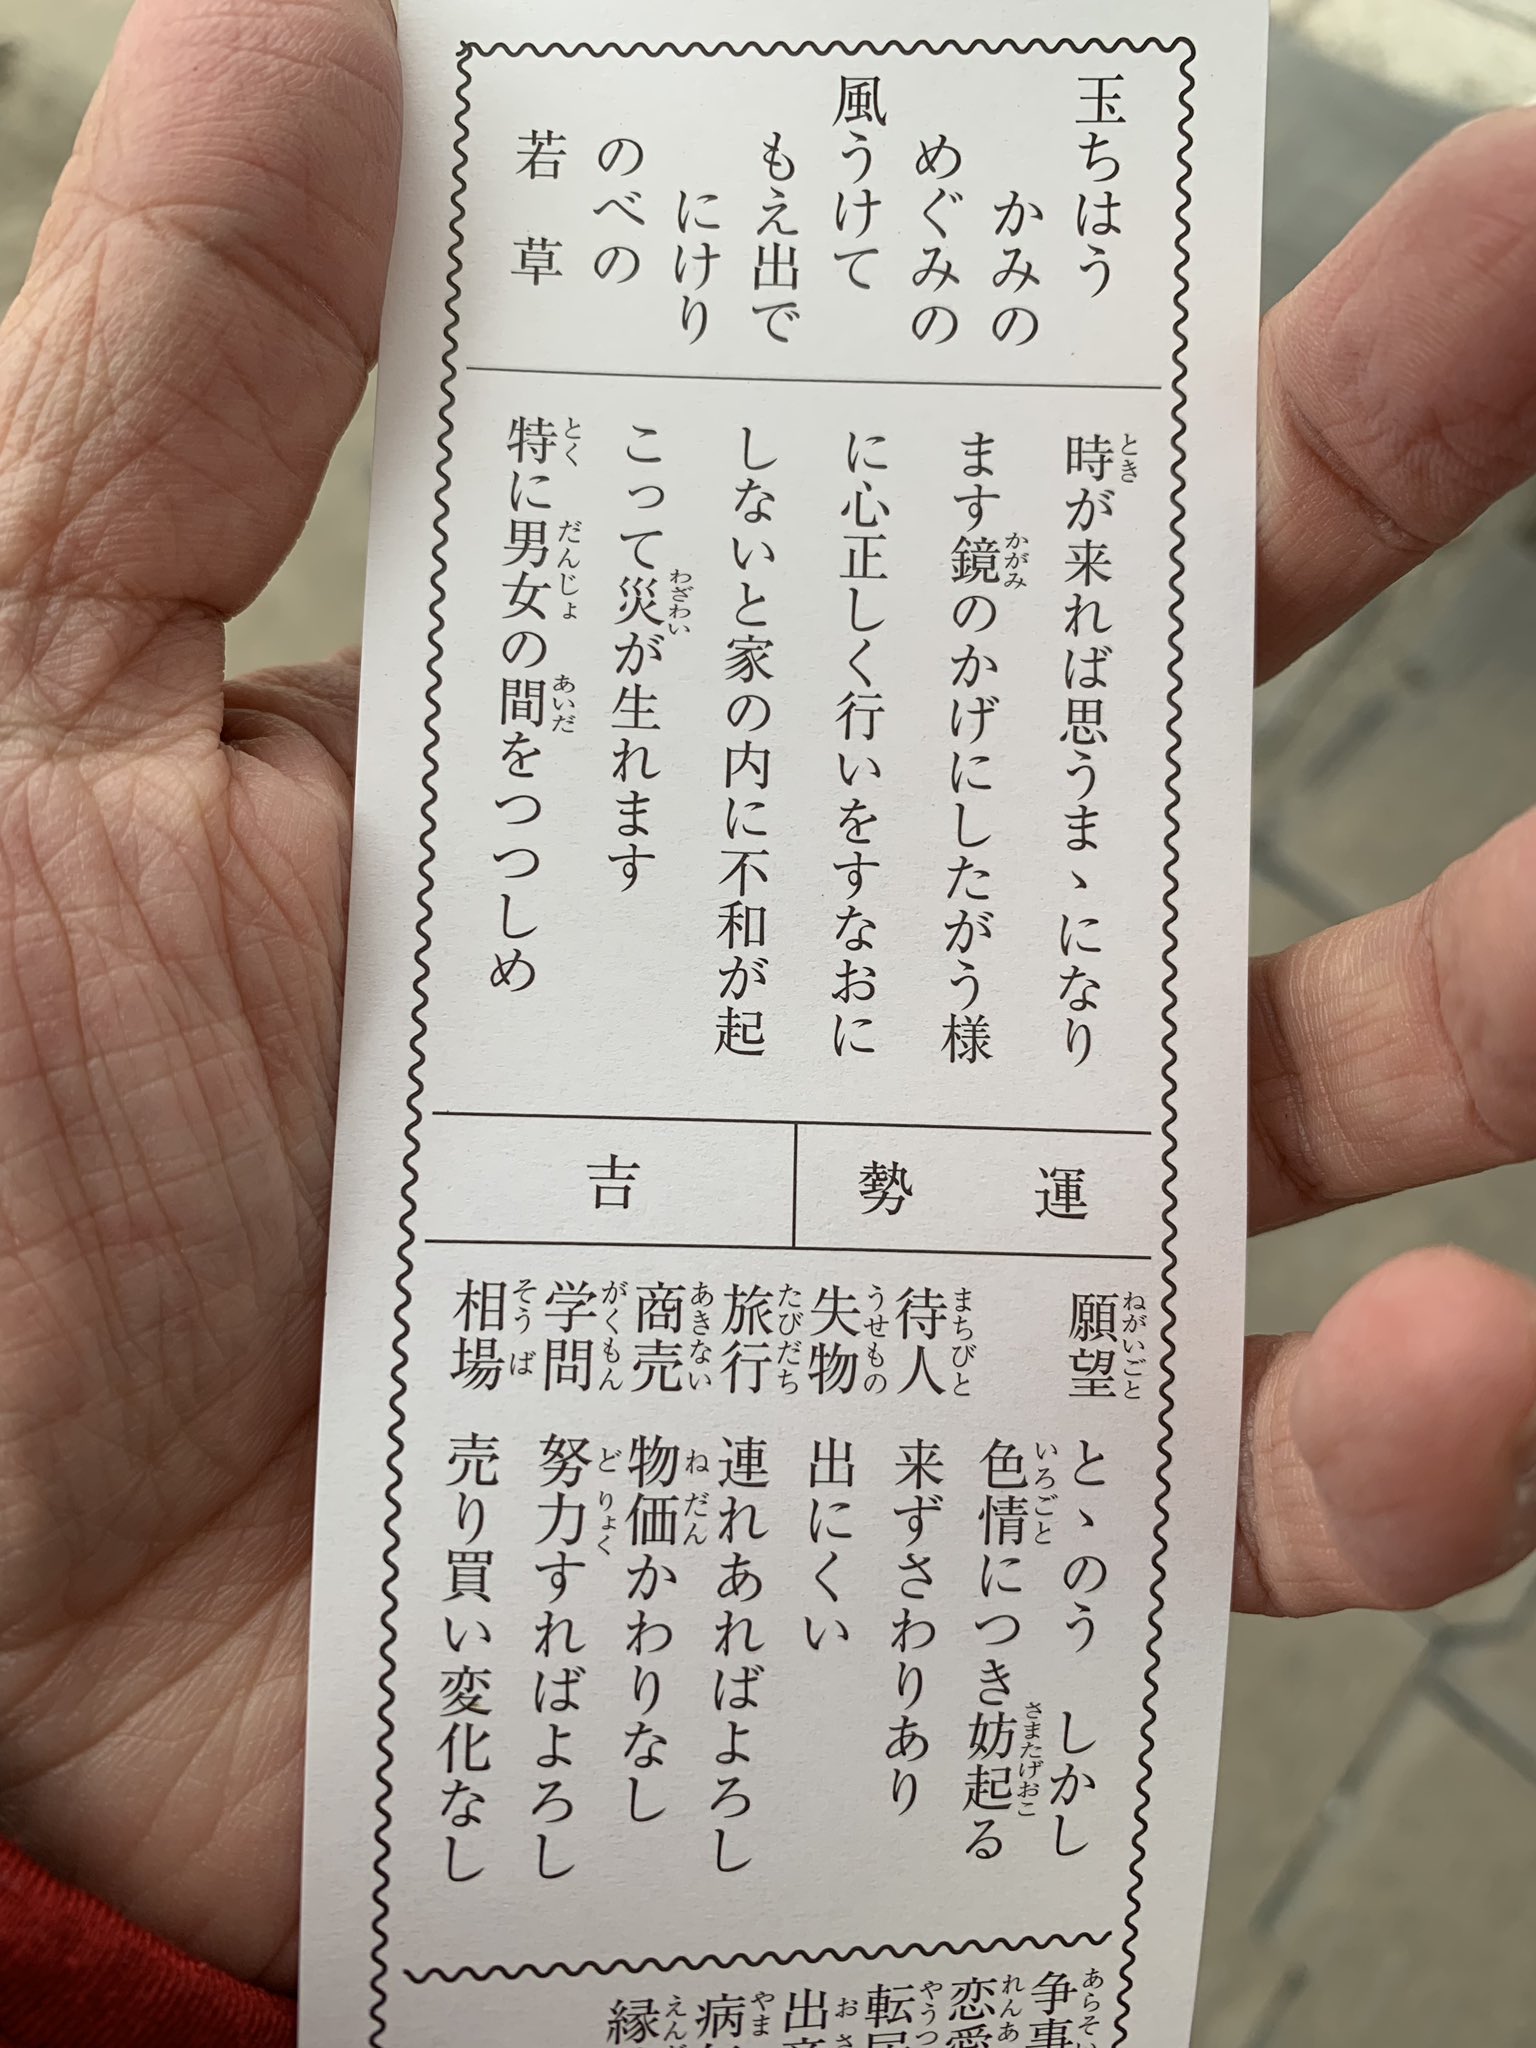 玉ちはう
かみの
めぐみの
風うけて
もえ出で
にけり
のべの
若草
時が来れば思うまゝになり
ます鏡のかげにしたがう様
に心正しく行いをすなおに
しないと家の内に不和が起
こって災が生れます
特に男女の間をつつしめ
運勢
吉
願望 とゝのう しかし
色情につき妨起る
待人 来ずさわりあり
失物 出にくい
旅行 連れあればよろし
商売 物価かわりなし
学問 努力すればよろし
相場 売り買い変化なし
争事
恋愛
転居
出産
病
縁